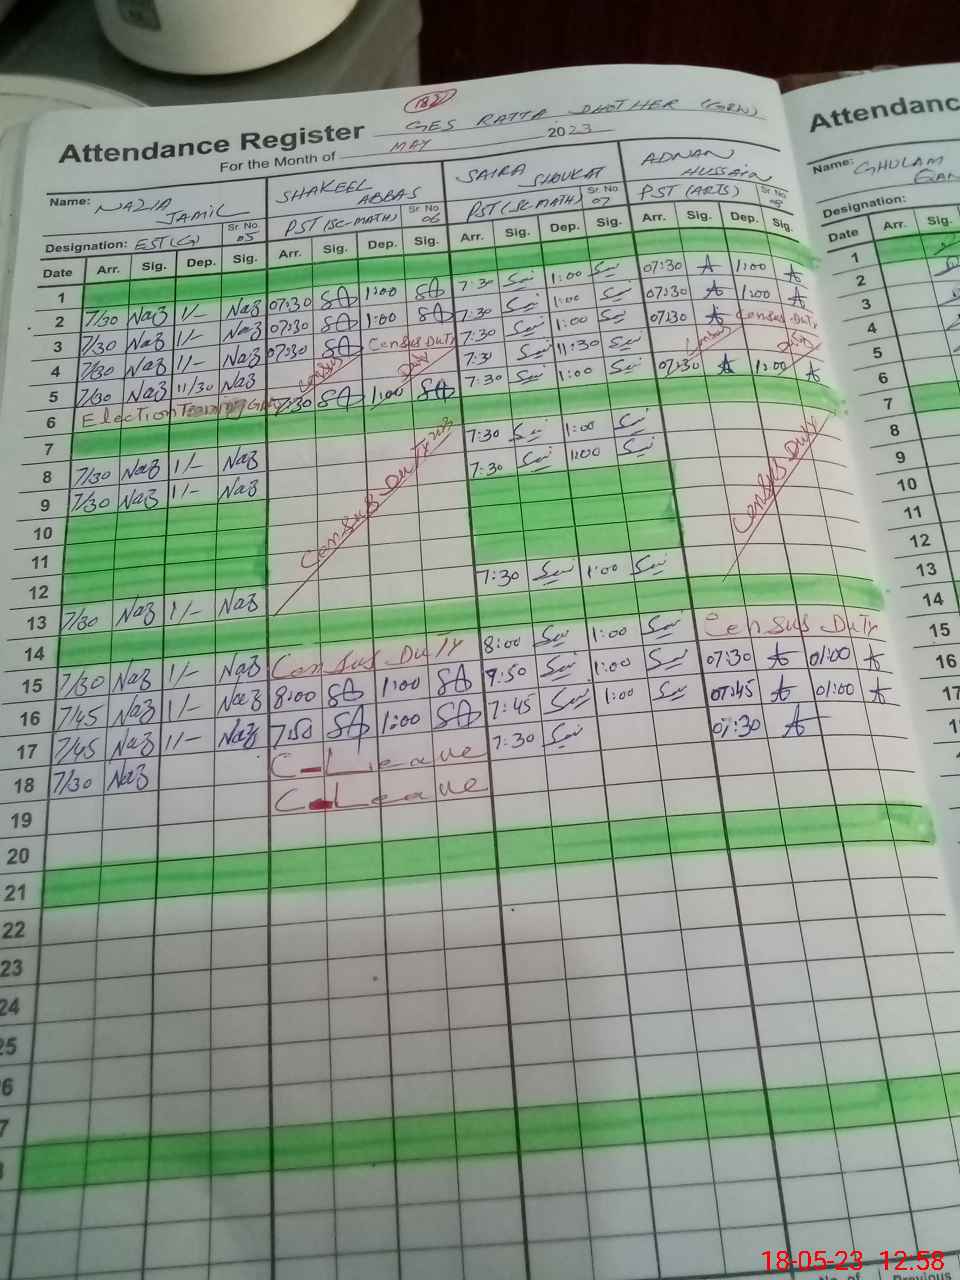 182
Attendance Register GES RATTA DHOTHER (GRW)
For the Month of MAY 2023
Name: NAZIA JAMIL SHAKEEL ABBAS SAIRA SHOUKAT ADNAN HUSSAIN
Designation: EST(G) Sr. No. 05 PST (SC-MATH) Sr. No. 06 PST (SC MATH) Sr. No. 07 PST (ARTS) Sr. No.
Date Arr. Sig. Dep. Sig. Arr. Sig. Dep. Sig. Arr. Sig. Dep. Sig. Arr. Sig. Dep. Sig.
1
2 7/30 Naz 1/- Naz 07:30 SA 1:00 SA 7:30 1:00 07:30 A 1:00 A
3 7/30 Naz 1/- Naz 07:30 SA 1:00 SA 7:30 1:00 07:30 A 1:00 A
4 7/30 Naz 1/- Naz 07:30 SA Census Duty 7:30 1:00 07:30 A Census Duty
5 7/30 Naz 11/30 Naz Census Duty 7:30 11:30 Census Duty
6 Election Training 7:30 SA 1:00 SA 7:30 1:00 07:30 A 1:00 A
7
8 7/30 Naz 1/- Naz 7:30 1:00
9 7/30 Naz 1/- Naz Census Duty 7:30 1:00 Census Duty
10
11
12
13 7/30 Naz 1/- Naz 7:30 1:00
14
15 7/30 Naz 1/- Naz Census Duty 8:00 1:00 Census Duty
16 7/45 Naz 1/- Naz 8:00 SA 1:00 SA 7:50 1:00 07:30 A 01:00 A
17 7/45 Naz 1/- Naz 7:50 SA 1:00 SA 7:45 1:00 07:45 A 01:00 A
18 7/30 Naz C-Leave 7:30 07:30 A
19 C-Leave
20
21
22
23
24
25
Attendanc
Name: GHULAM
Designation:
Date Arr. Sig.
1
2
3
4
5
6
7
8
9
10
11
12
13
14
15
16
17
18-05-23 12:58